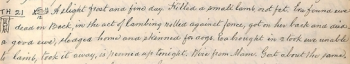 TH 21 A slight frost and fine day. Killed a small lamb not fat. One Gunna ewe
dead on Back, in the act of lambing rolled against fence, got on her back and died
a good ewe, sledged home and skinned for dogs. Ewe brought in & took we unable
to lamb, took it away, is penned up tonight. Wire from Mum. Gert about the same.